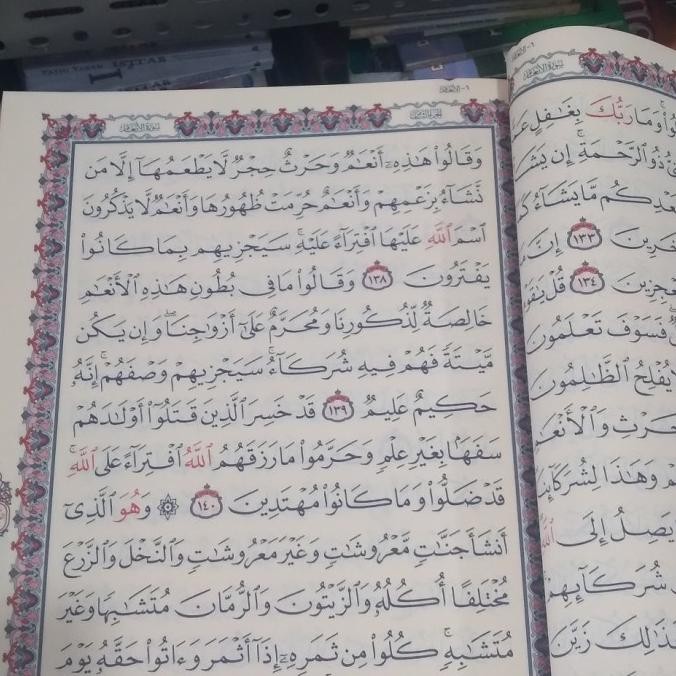 سورة الأنعام
وَقَالُوا۟ هَـٰذِهِۦٓ أَنْعَـٰمٌ وَحَرْثٌ حِجْرٌ لَّا يَطْعَمُهَآ إِلَّا مَن
نَّشَآءُ بِزَعْمِهِمْ وَأَنْعَـٰمٌ حُرِّمَتْ ظُهُورُهَا وَأَنْعَـٰمٌ لَّا يَذْكُرُونَ
ٱسْمَ ٱللَّهِ عَلَيْهَا ٱفْتِرَآءً عَلَيْهِ ۚ سَيَجْزِيهِم بِمَا كَانُوا۟
يَفْتَرُونَ ١٣٨ وَقَالُوا۟ مَا فِى بُطُونِ هَـٰذِهِ ٱلْأَنْعَـٰمِ
خَالِصَةٌ لِّذُكُورِنَا وَمُحَرَّمٌ عَلَىٰٓ أَزْوَٰجِنَا ۖ وَإِن يَكُن
مَّيْتَةً فَهُمْ فِيهِ شُرَكَآءُ ۚ سَيَجْزِيهِمْ وَصْفَهُمْ ۚ إِنَّهُۥ
حَكِيمٌ عَلِيمٌ ١٣٩ قَدْ خَسِرَ ٱلَّذِينَ قَتَلُوٓا۟ أَوْلَـٰدَهُمْ
سَفَهًۢا بِغَيْرِ عِلْمٍ وَحَرَّمُوا۟ مَا رَزَقَهُمُ ٱللَّهُ ٱفْتِرَآءً عَلَى ٱللَّهِ ۚ
قَدْ ضَلُّوا۟ وَمَا كَانُوا۟ مُهْتَدِينَ ١٤٠ ۞ وَهُوَ ٱلَّذِىٓ
أَنشَأَ جَنَّـٰتٍ مَّعْرُوشَـٰتٍ وَغَيْرَ مَعْرُوشَـٰتٍ وَٱلنَّخْلَ وَٱلزَّرْعَ
مُخْتَلِفًا أُكُلُهُۥ وَٱلزَّيْتُونَ وَٱلرُّمَّانَ مُتَشَـٰبِهًا وَغَيْرَ
مُتَشَـٰبِهٍ ۚ كُلُوا۟ مِن ثَمَرِهِۦٓ إِذَآ أَثْمَرَ وَءَاتُوا۟ حَقَّهُۥ يَوْمَ
سورة الأنعام
وَمَا رَبُّكَ بِغَـٰفِلٍ
ذُو ٱلرَّحْمَةِ ۚ إِن
مَّا يَشَآءُ
١٣٣ إِنَّ
١٣٤ قُلْ
فَسَوْفَ تَعْلَمُونَ
يُفْلِحُ ٱلظَّـٰلِمُونَ
وَٱلْأَنْعَـٰمِ
وَهَـٰذَا لِشُرَكَآئِنَا
يَصِلُ إِلَى
شُرَكَآئِهِمْ
زَيَّنَ